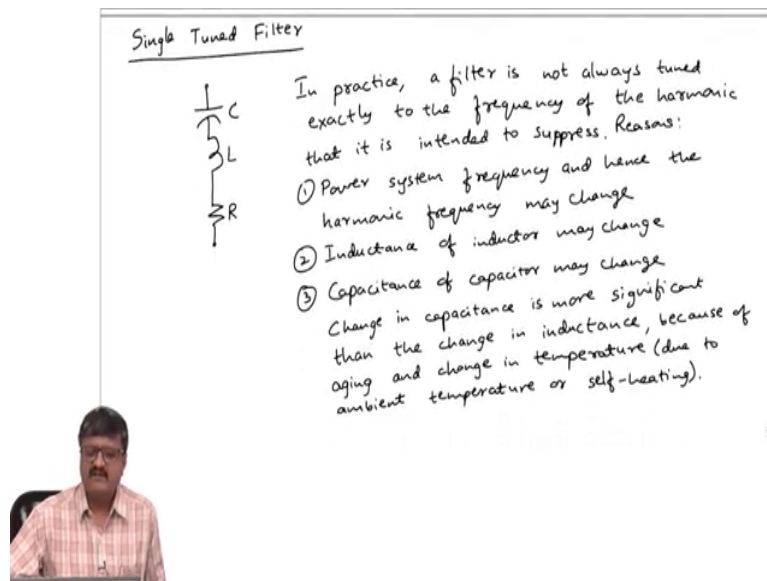 Single Tuned Filter
C
L
R
In practice, a filter is not always tuned
exactly to the frequency of the harmonic
that it is intended to suppress. Reasons:
① Power system frequency and hence the
harmonic frequency may change
② Inductance of inductor may change
③ Capacitance of capacitor may change
Change in capacitance is more significant
than the change in inductance, because of
aging and change in temperature (due to
ambient temperature or self-heating).